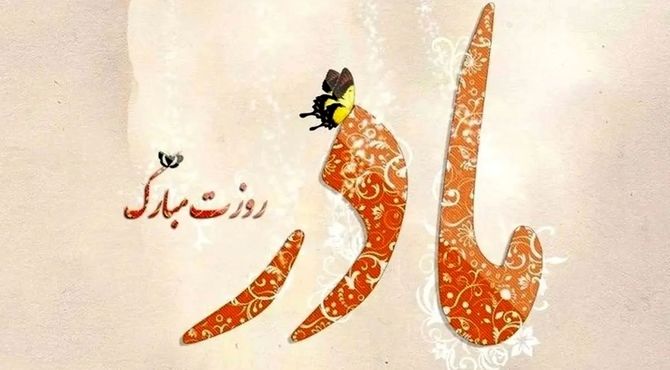 مادر
روزت مبارک